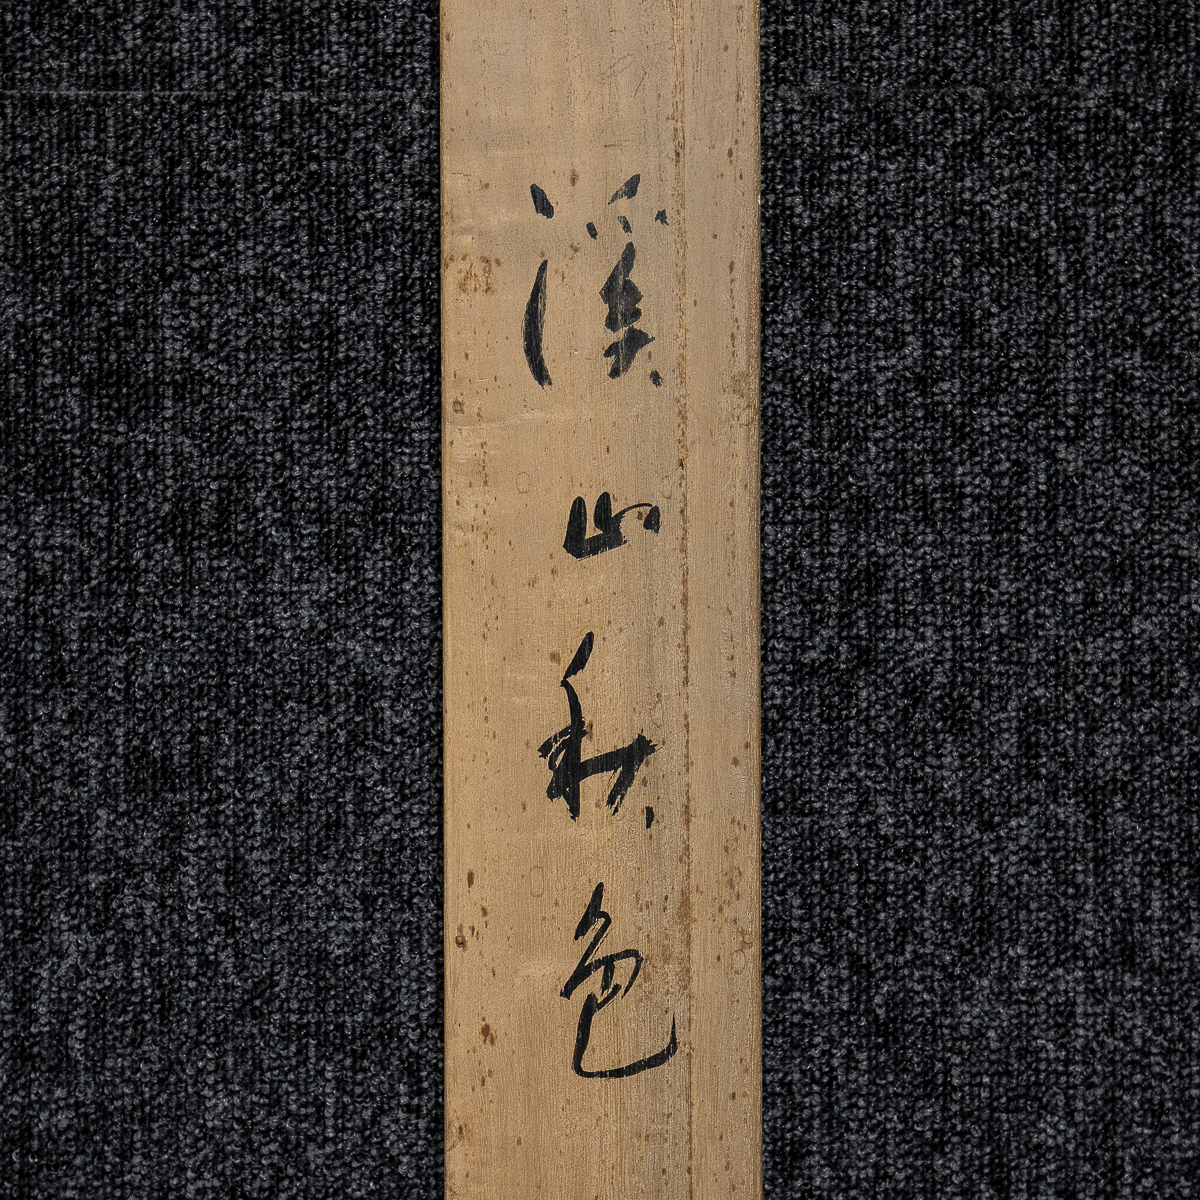 溪山秋色